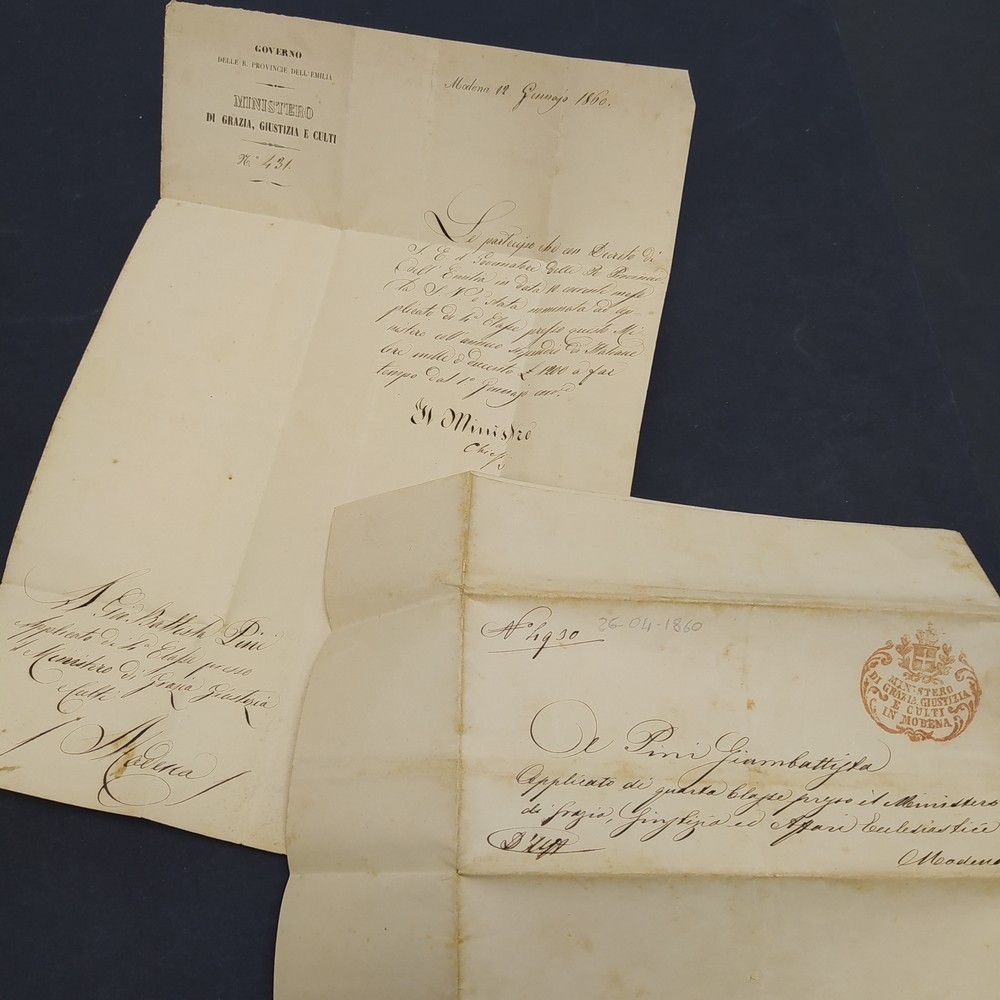 GOVERNO
DELLE R. PROVINCIE DELL'EMILIA
MINISTERO
DI GRAZIA, GIUSTIZIA E CULTI
N.° 431
Modena 12 Gennajo 1860.
Le partecipo che con Decreto di
S. E. il Governatore delle Re. Provincie
dell'Emilia in data 10 corrente mese
la S. V. è stata nominata ad ap-
plicato di 4.a Classe presso questo Mi-
nistero coll'annuo stipendio di Italiane
lire mille e duecento £ 1200 a far
tempo dal 1.° Gennajo corr.e
Il Ministro
Chiesi
Gio. Battista Pini
Applicato di 4.a Classe presso
il Ministero di Grazia Giustizia
e Culti
Modena
N.° 4930
26-04-1860
MINISTERO
DI GRAZIA, GIUSTIZIA
E CULTI
IN MODENA
Al Pini Giambattista
Applicato di quarta Classe presso il Ministero
di Grazia, Giustizia ed Affari Ecclesiastici
Modena